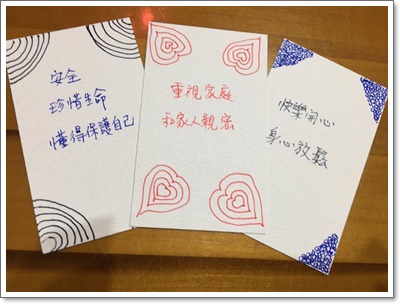 安全
珍惜生命
懂得保護自己
重視家庭
和家人親密
快樂開心
身心放鬆